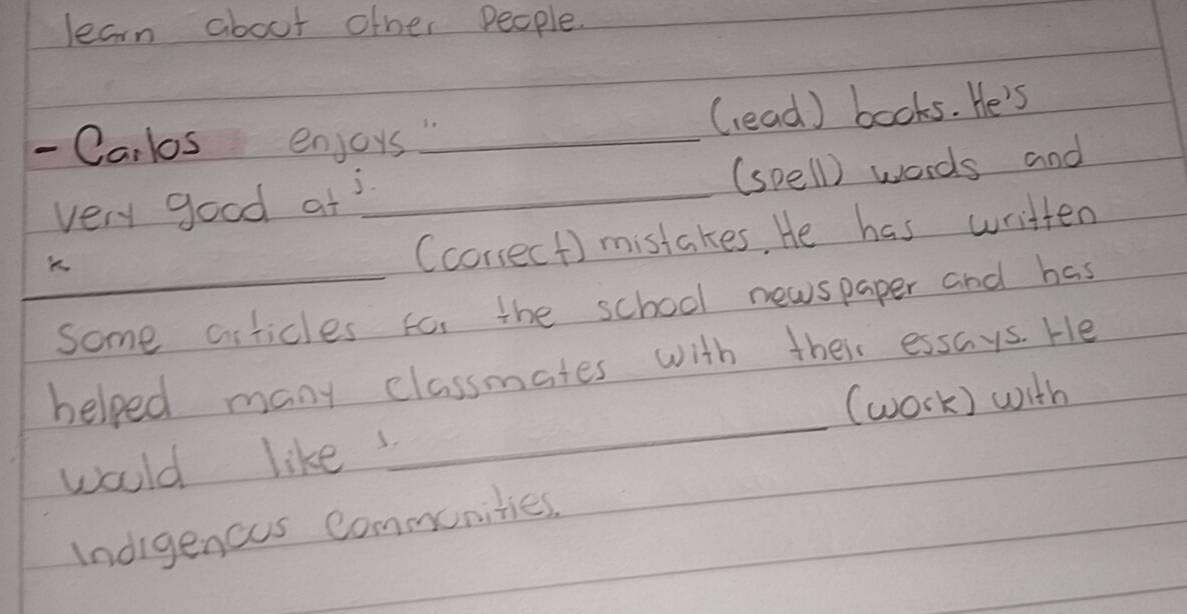 learn about other people.
- Carlos enjoys i. ________ (read) books. He's
very good at j. ________ (spell) words and
k ________ (correct) mistakes. He has written
some articles for the school newspaper and has
helped many classmates with their essays. He
would like l. ________ (work) with
Indigenous Communities.